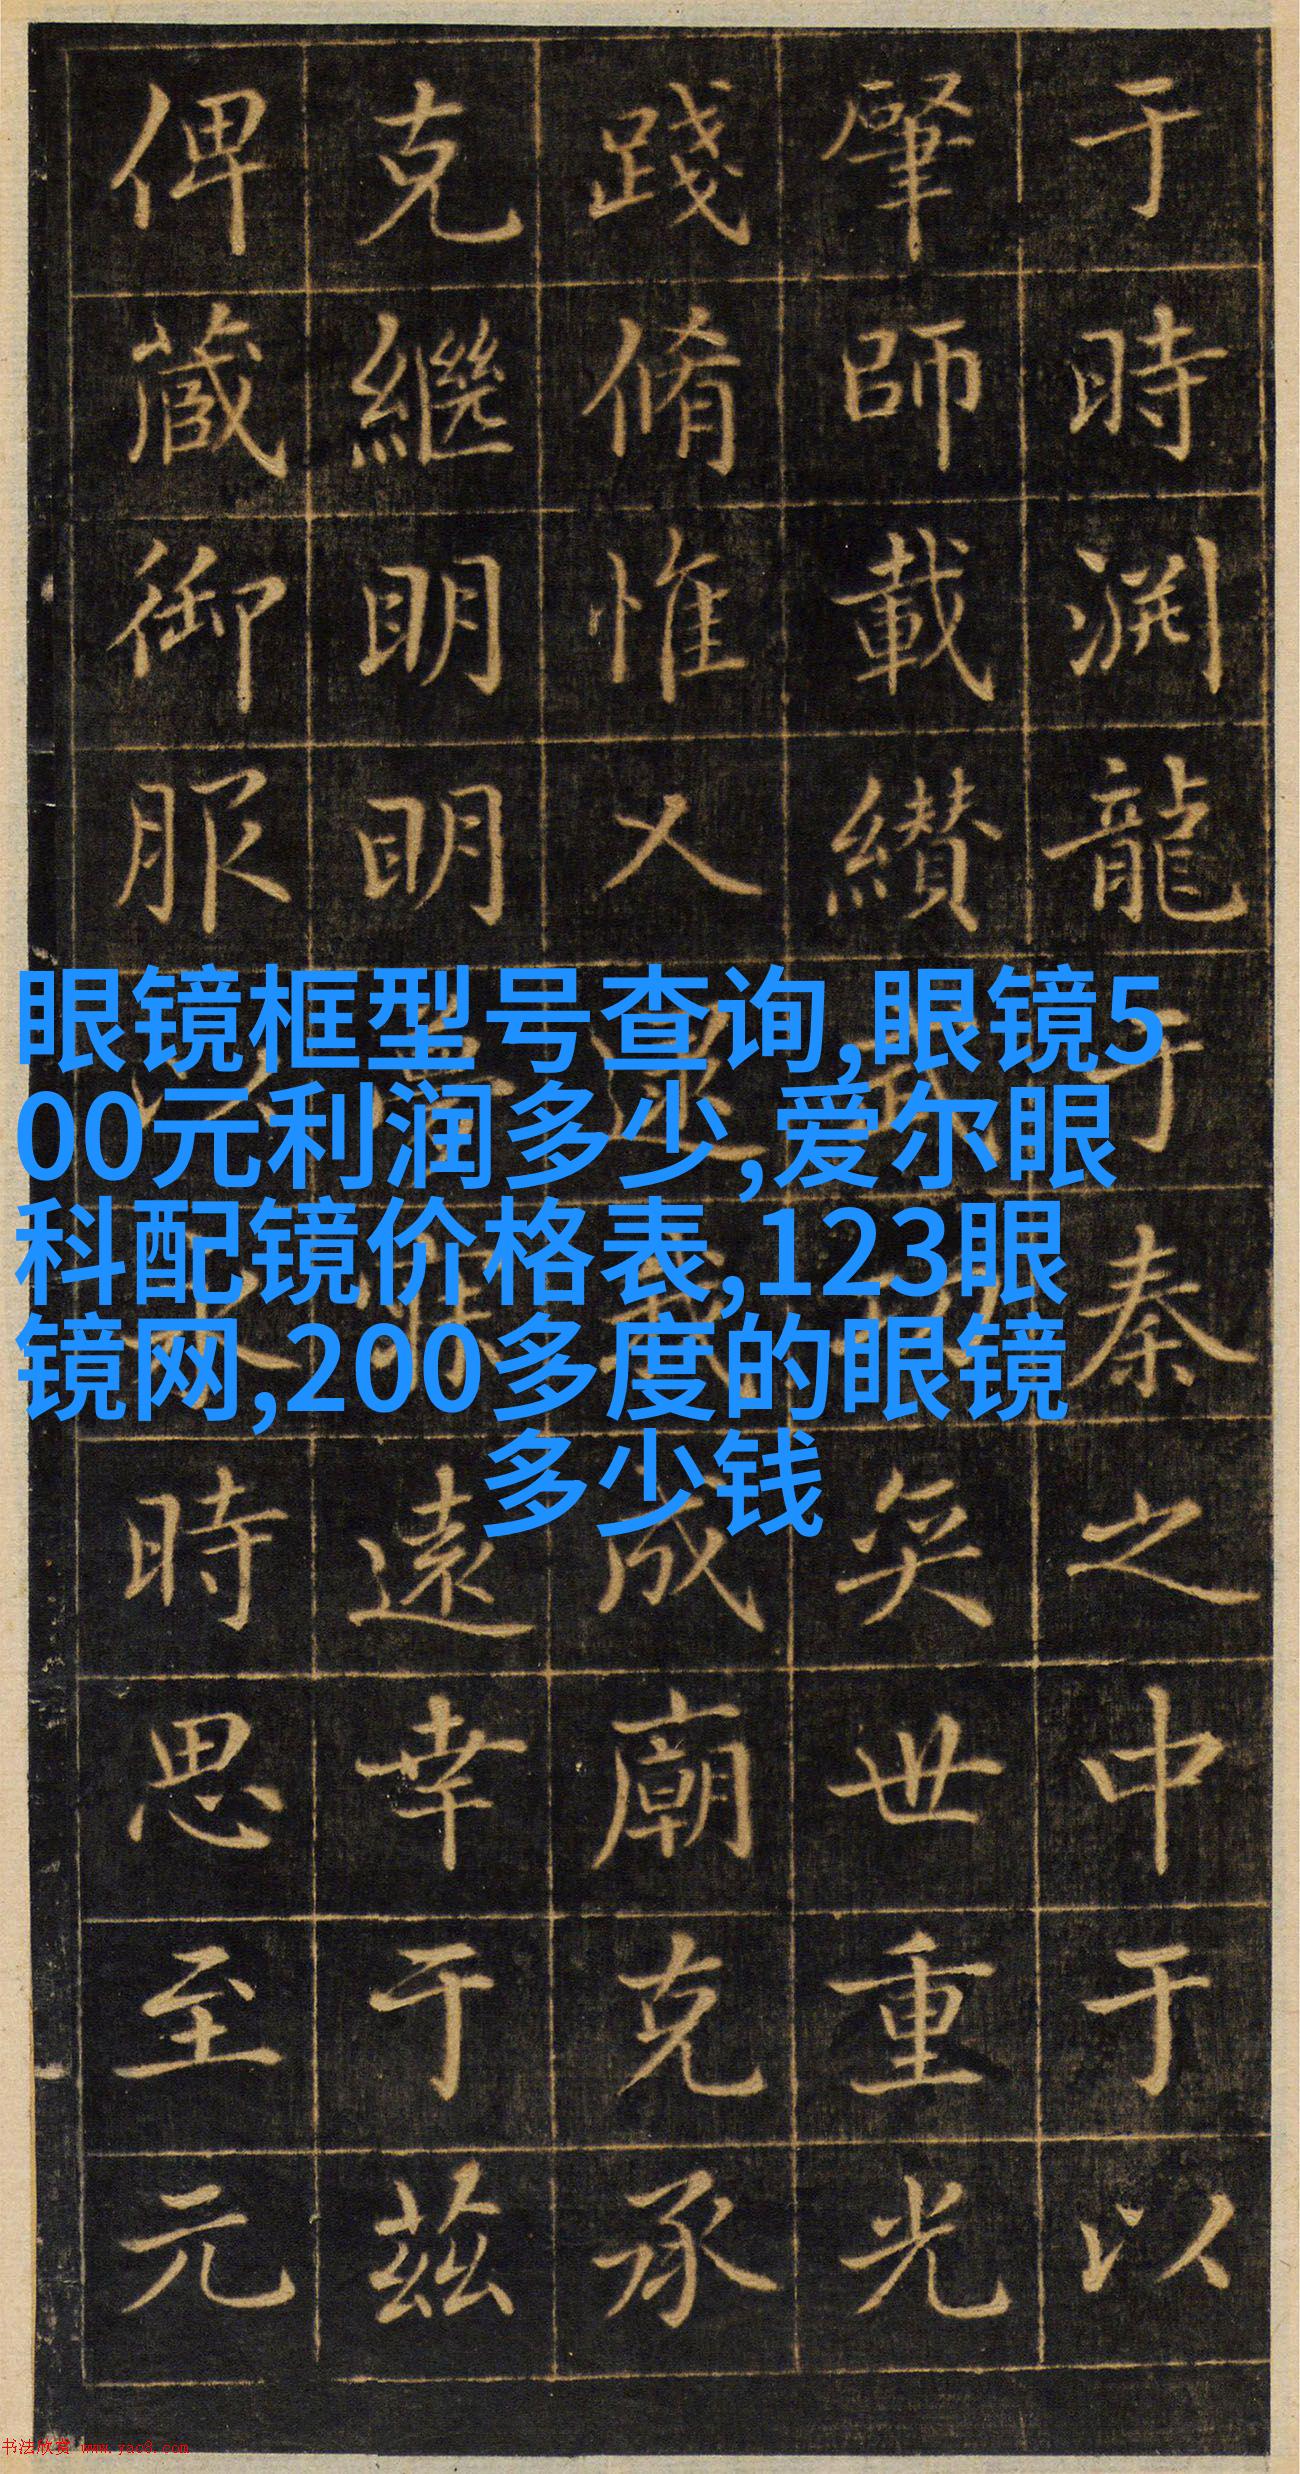 于時渊龍于秦之中于以
肇師載纉武奕世重光
踐脩惟人成廟克承
克繼明明遠幸于茲
俾蕆御服時思至元
眼镜框型号查询,眼镜5
00元利润多少,爱尔眼
科配镜价格表,123眼
镜网,200多度的眼镜
多少钱
书法欣赏 www.yac8.com